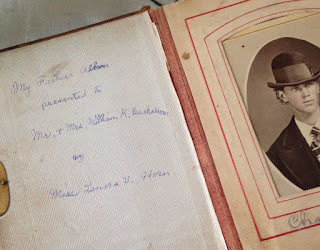 My Father's Album
presented to
Mr. & Mrs. William K.
by
Miss Lenora V. Horn
Cha